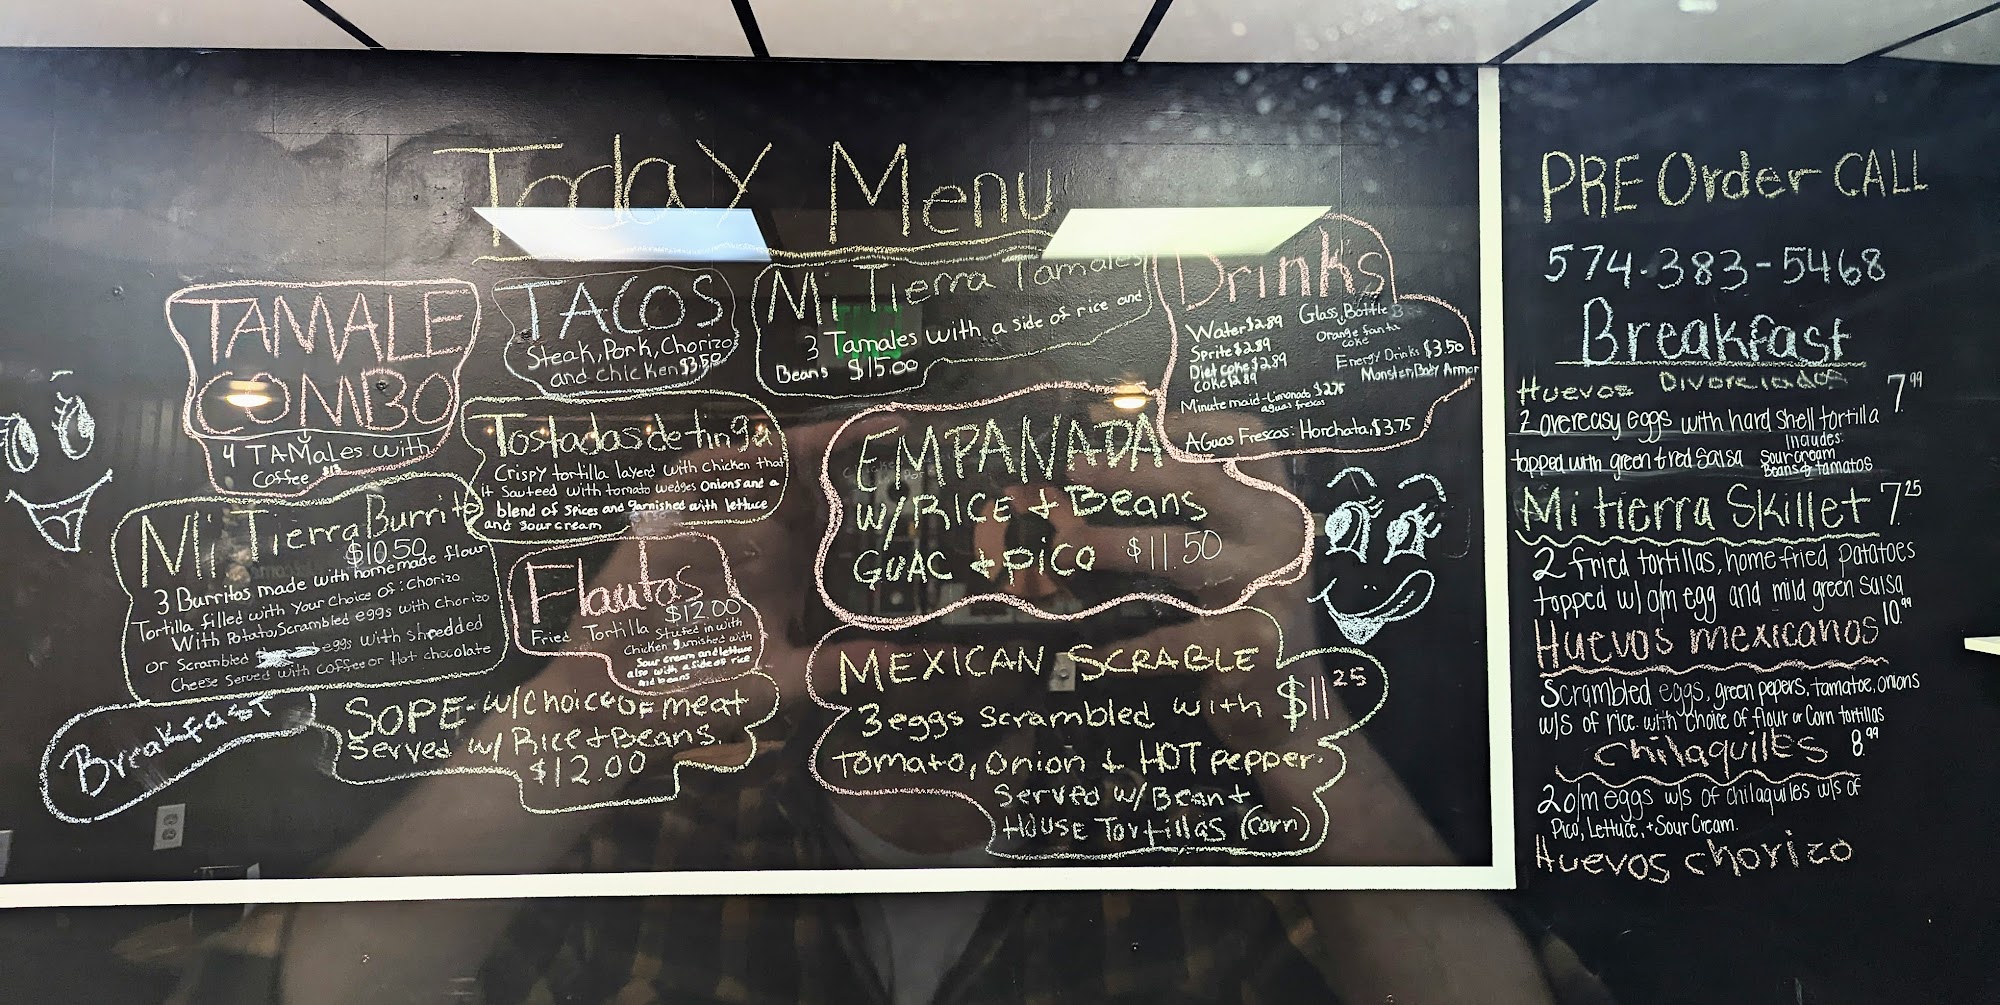 Today Menu
TAMALE
COMBO
4 TAMales with
Coffee $15
TACOS
Steak, Pork, Chorizo
and chicken $3.50
Mi Tierra Tamales
3 Tamales with a side of rice and
Beans $15.00
Drinks
Water $2.89
Sprite $2.89
Diet coke $2.89
Coke 2.89
Glass Bottle 3
Orange fanta
coke
Energy Drinks $3.50
Monster, Body Armor
Minute maid-Limonada $2.75
aguas frescas
AGuas Frescas: Horchata, $3.75
Tostadas de tinga
Crispy tortilla layerd with chicken that
is sauteed with tomato wedges onions and a
blend of spices and garnished with lettuce
and sour cream
EMPANADA
W/RICE + Beans
GUAC + pico $11.50
Mi Tierra Burrito
$10.50
3 Burritos made with homemade flour
Tortilla filled with your choice of: Chorizo
With Potato, Scrambled eggs with chorizo
or Scrambled eggs with shredded
Cheese Served with coffee or Hot chocolate
Flautas
$12.00
Fried Tortilla stufed in with
Chicken garnished with
Sour cream and lettuce
also with a side of rice
and beans
Breakfast
SOPE-w/Choice OF meat
Served w/ Rice + Beans.
$12.00
MEXICAN SCRABLE
3 eggs scrambled with $11 25
Tomato, Onion + HOT pepper.
Served w/ Bean +
House Tortillas (Corn)
PRE Order CALL
574-383-5468
Breakfast
Huevos Divorciados 7.99
2 overeasy eggs with hard shell tortilla
topped with green & red salsa
Incudes:
Sour cream
Beans & tamatos
Mi tierra Skillet 7.25
2 fried tortillas, home fried patatoes
topped w/ o/m egg and mild green salsa
Huevos mexicanos 10.99
Scrambled eggs, green pepers, tamatoe, onions
w/s of rice with choice of flour or Corn tortillas
Chilaquiles 8.99
2 o/m eggs w/s of chilaquiles w/s of
Pico, Lettuce, + Sour Cream.
Huevos chorizo